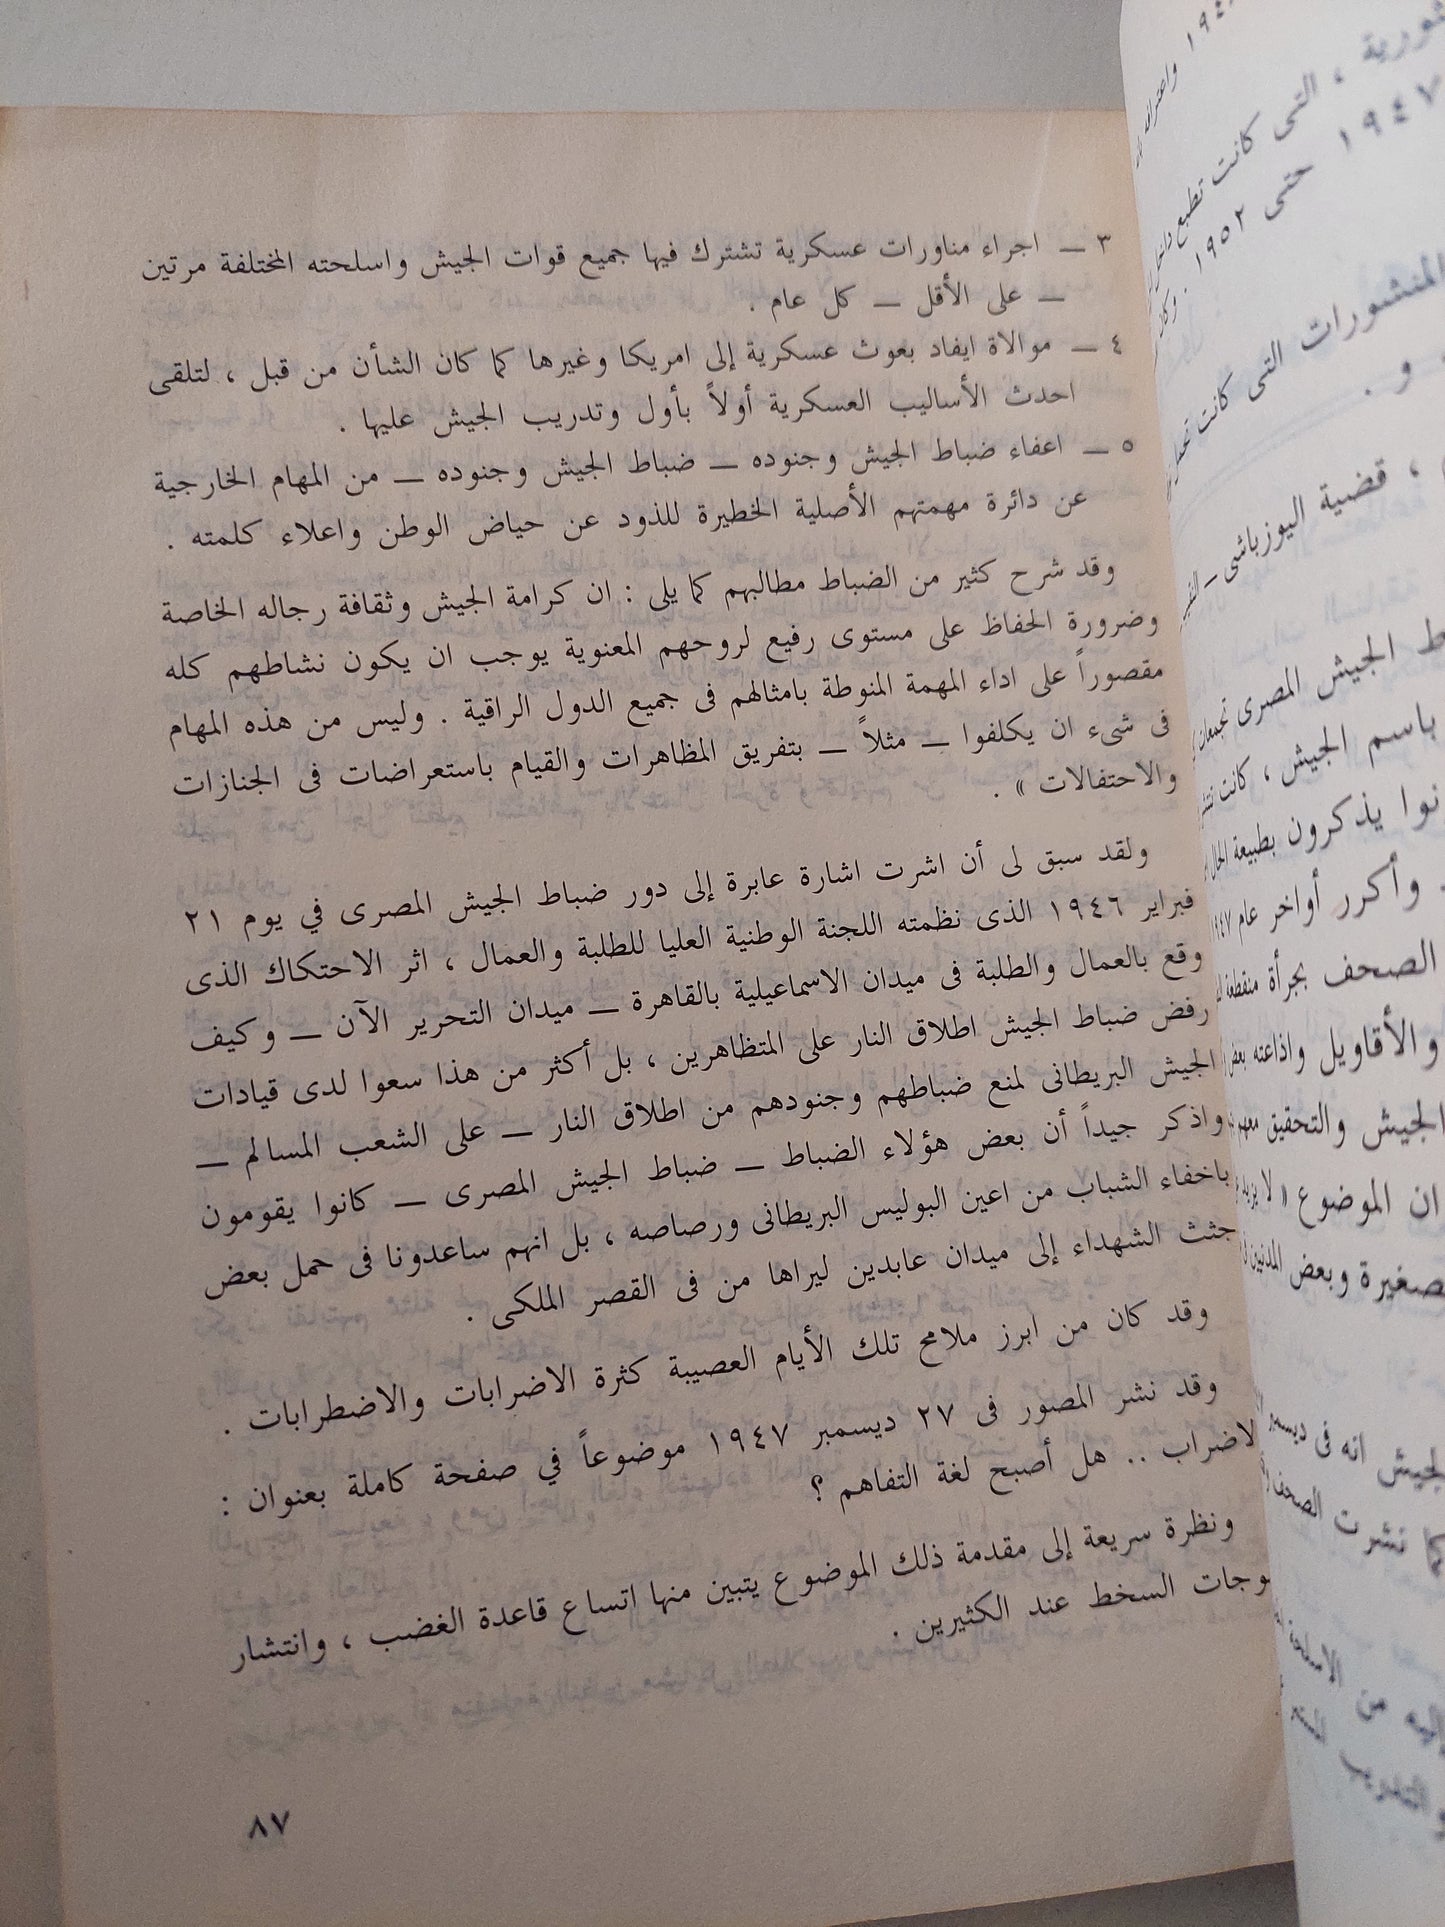 ٣ — اجراء مناورات عسكرية تشترك فيها جميع قوات الجيش واسلحته المختلفة مرتين
— على الأقل — كل عام .
٤ — موالاة ايفاد بعوث عسكرية إلى امريكا وغيرها كما كان الشأن من قبل ، لتلقى
احدث الأساليب العسكرية أولاً بأول وتدريب الجيش عليها .
٥ — اعفاء ضباط الجيش وجنوده — ضباط الجيش وجنوده — من المهام الخارجية
عن دائرة مهمتهم الأصلية الخطيرة للذود عن حياض الوطن واعلاء كلمته .
وقد شرح كثير من الضباط مطالبهم كما يلى : ان كرامة الجيش وثقافة رجاله الخاصة
وضرورة الحفاظ على مستوى رفيع لروحهم المعنوية يوجب ان يكون نشاطهم كله
مقصوراً على اداء المهمة المنوطة بامثالهم فى جميع الدول الراقية . وليس من هذه المهام
فى شىء ان يكلفوا — مثلاً — بتفريق المظاهرات والقيام باستعراضات فى الجنازات
والاحتفالات » .
ولقد سبق لى أن اشرت اشارة عابرة إلى دور ضباط الجيش المصرى في يوم ٢١
فبراير ١٩٤٦ الذى نظمته اللجنة الوطنية العليا للطلبة والعمال ، اثر الاحتكاك الذى
وقع بالعمال والطلبة فى ميدان الاسماعيلية بالقاهرة — ميدان التحرير الآن — وكيف
رفض ضباط الجيش اطلاق النار على المتظاهرين ، بل أكثر من هذا سعوا لدى قيادات
الجيش البريطانى لمنع ضباطهم وجنودهم من اطلاق النار — على الشعب المسالم —
واذكر جيداً أن بعض هؤلاء الضباط — ضباط الجيش المصرى — كانوا يقومون
باخفاء الشباب من اعين البوليس البريطانى ورصاصه ، بل انهم ساعدونا فى حمل بعض
جثث الشهداء إلى ميدان عابدين ليراها من فى القصر الملكى .
وقد كان من ابرز ملامح تلك الأيام العصيبة كثرة الاضرابات والاضطرابات .
وقد نشر المصور فى ٢٧ ديسمبر ١٩٤٧ موضوعاً في صفحة كاملة بعنوان :
لاضراب .. هل أصبح لغة التفاهم ؟
ونظرة سريعة إلى مقدمة ذلك الموضوع يتبين منها اتساع قاعدة الغضب ، وانتشار
وجات السخط عند الكثيرين .
٨٧
ثورية ، التى كانت تطبع
١٩٤٧ حتى ١٩٥٢ .
المنشورات التى كانت
و .
، قضية اليوزباشى —
ط الجيش المصرى
باسم الجيش ، كانت
نوا يذكرون بطبيعة الحال
وأكرر أواخر عام
الصحف بجرأة منقطعة
والأقاويل واذاعته بعض
الجيش والتحقيق معهم
ان الموضوع « لا يزيد
صغيرة وبعض المدنيين
لجيش انه فى ديسمبر
كما نشرت الصحف